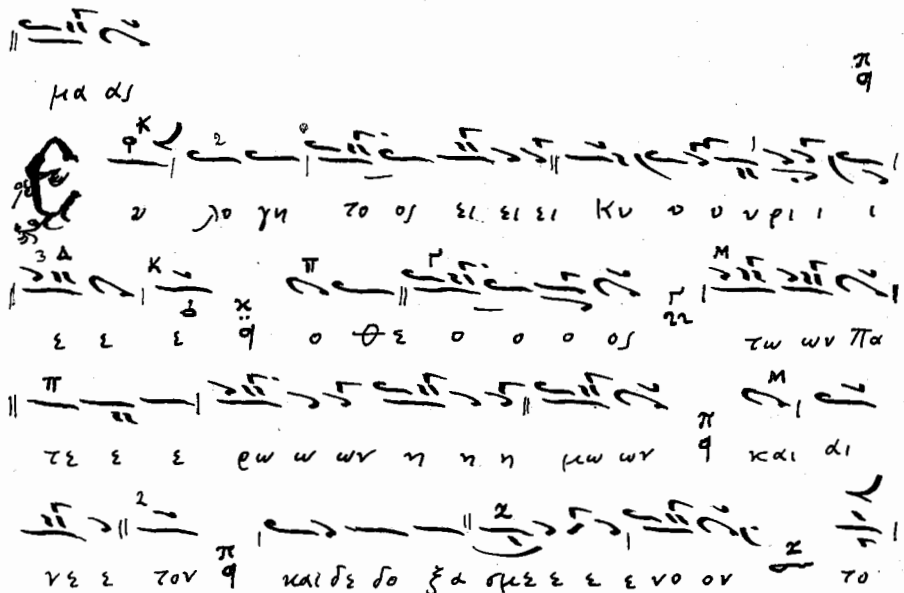 μα ας
Ε υ λο γη το ος ει ει ει Κυ υ υ υ ρι ι ι
ε ε ε ο Θε ο ο ο ος τω ων Πα
τε ε ε ρω ω ων η η η μω ων και αι
νε ε τον και δε δο ξα σμε ε ε ε νο ον το